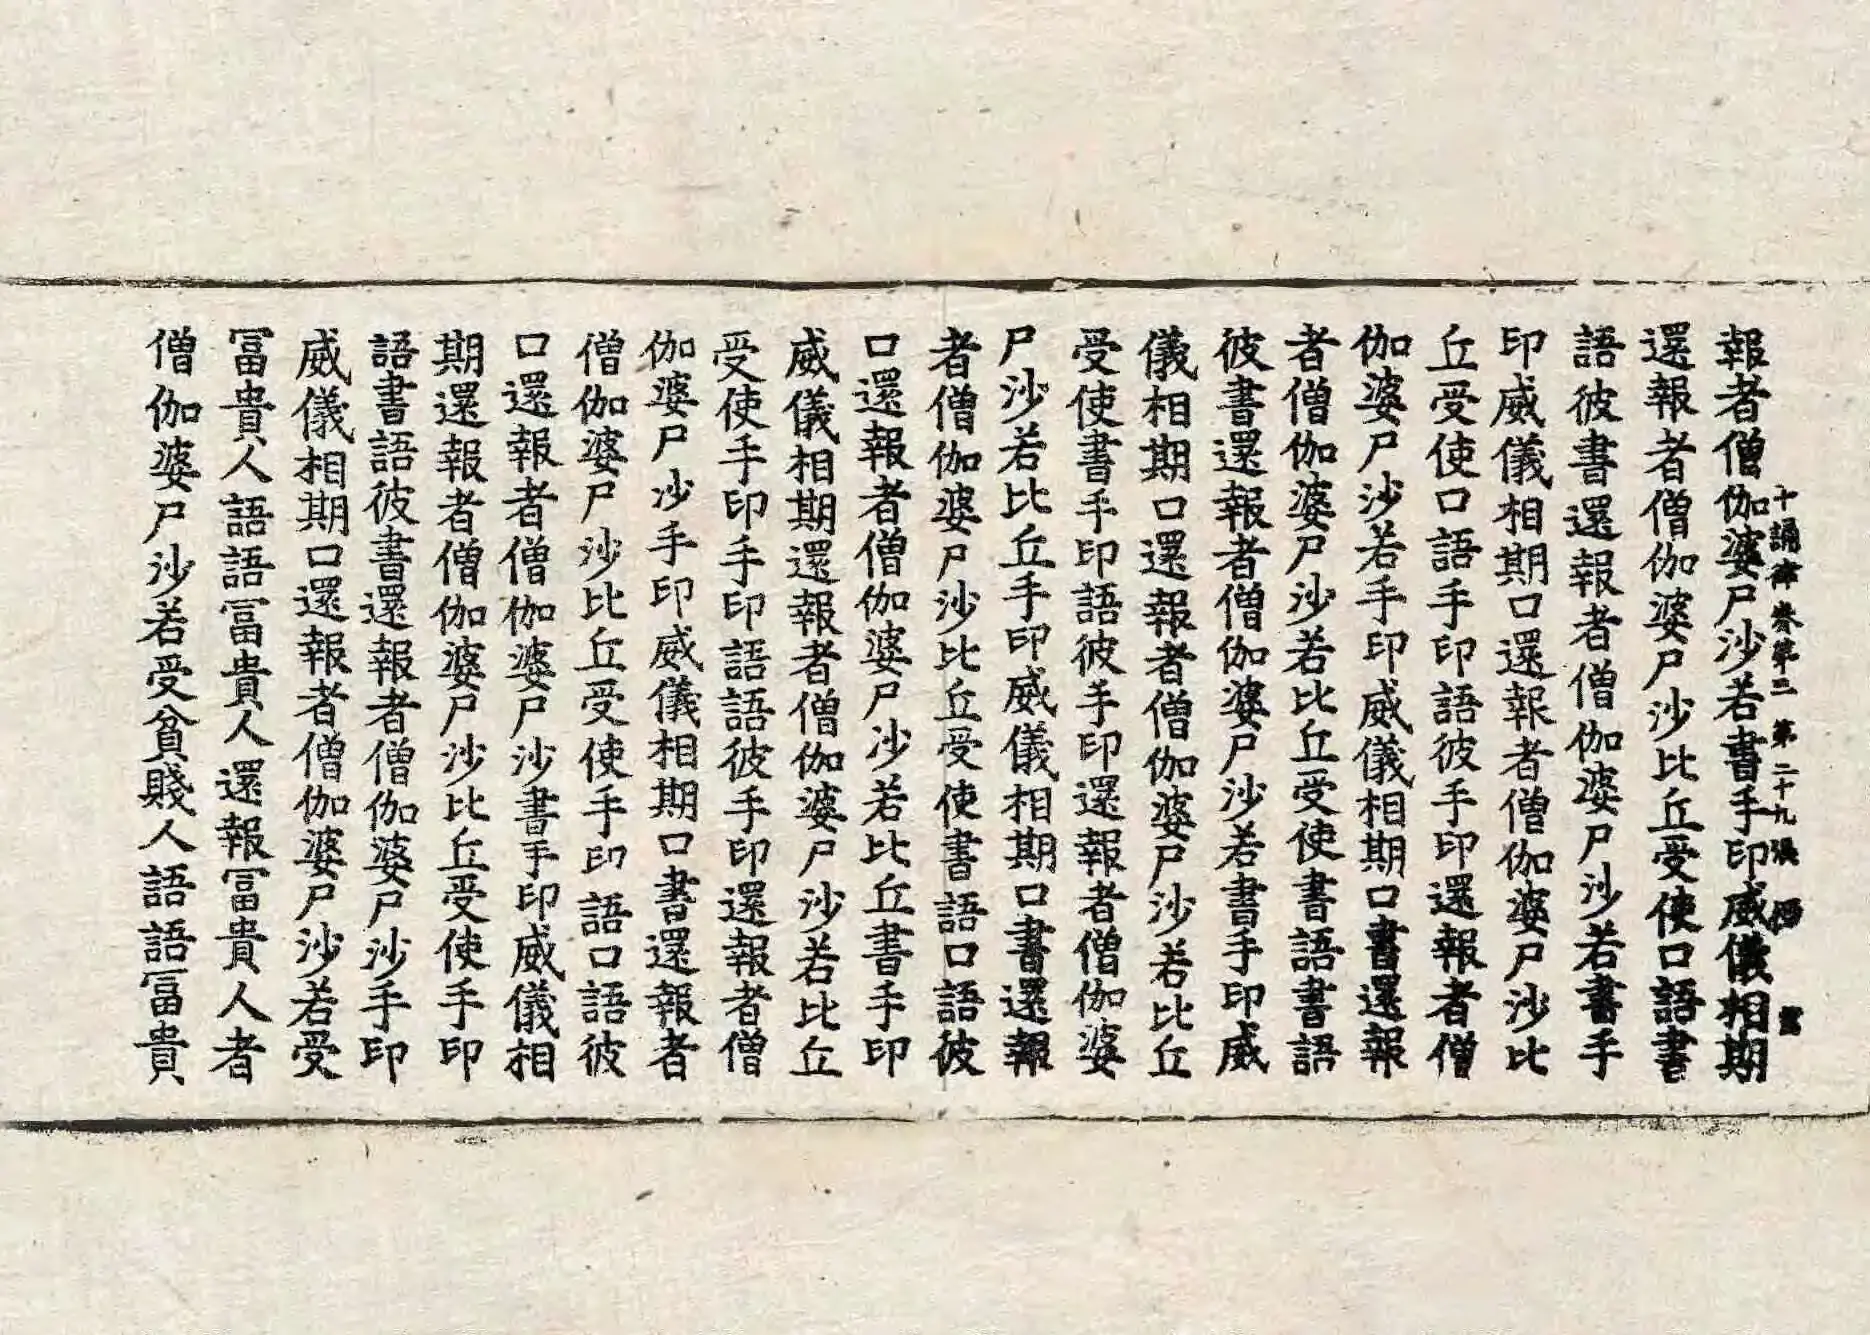 十誦律卷第三 第二十九張
報者僧伽婆尸沙若書手印威儀相期
還報者僧伽婆尸沙比丘受使口語書
語彼書還報者僧伽婆尸沙若書手
印威儀相期口還報者僧伽婆尸沙比
丘受使口語手印語彼手印還報者僧
伽婆尸沙若手印威儀相期口書還報
者僧伽婆尸沙若比丘受使書語書語
彼書還報者僧伽婆尸沙若書手印威
儀相期口還報者僧伽婆尸沙若比丘
受使書手印語彼手印還報者僧伽婆
尸沙若比丘手印威儀相期口書還報
者僧伽婆尸沙比丘受使書語口語彼
口還報者僧伽婆尸沙若比丘書手印
威儀相期還報者僧伽婆尸沙若比丘
受使手印手印語語彼手印還報者僧
伽婆尸沙手印威儀相期口書還報者
僧伽婆尸沙比丘受使手印語口語彼
口還報者僧伽婆尸沙書手印威儀相
期還報者僧伽婆尸沙比丘受使手印
語書語彼書還報者僧伽婆尸沙手印
威儀相期口還報者僧伽婆尸沙若受
冨貴人語語冨貴人還報冨貴人者
僧伽婆尸沙若受貧賤人語語冨貴